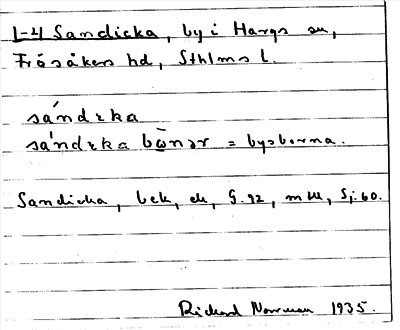 1-4 Sandicka, by i Hargs sn,
Frösåkers hd, Sthlms l.
sándɩka
sándɩka bö̀nər = bysborna.
Sandicka, bek, ek, G. 92, m tll, Sj. 60.
Richard Norrman 1935.